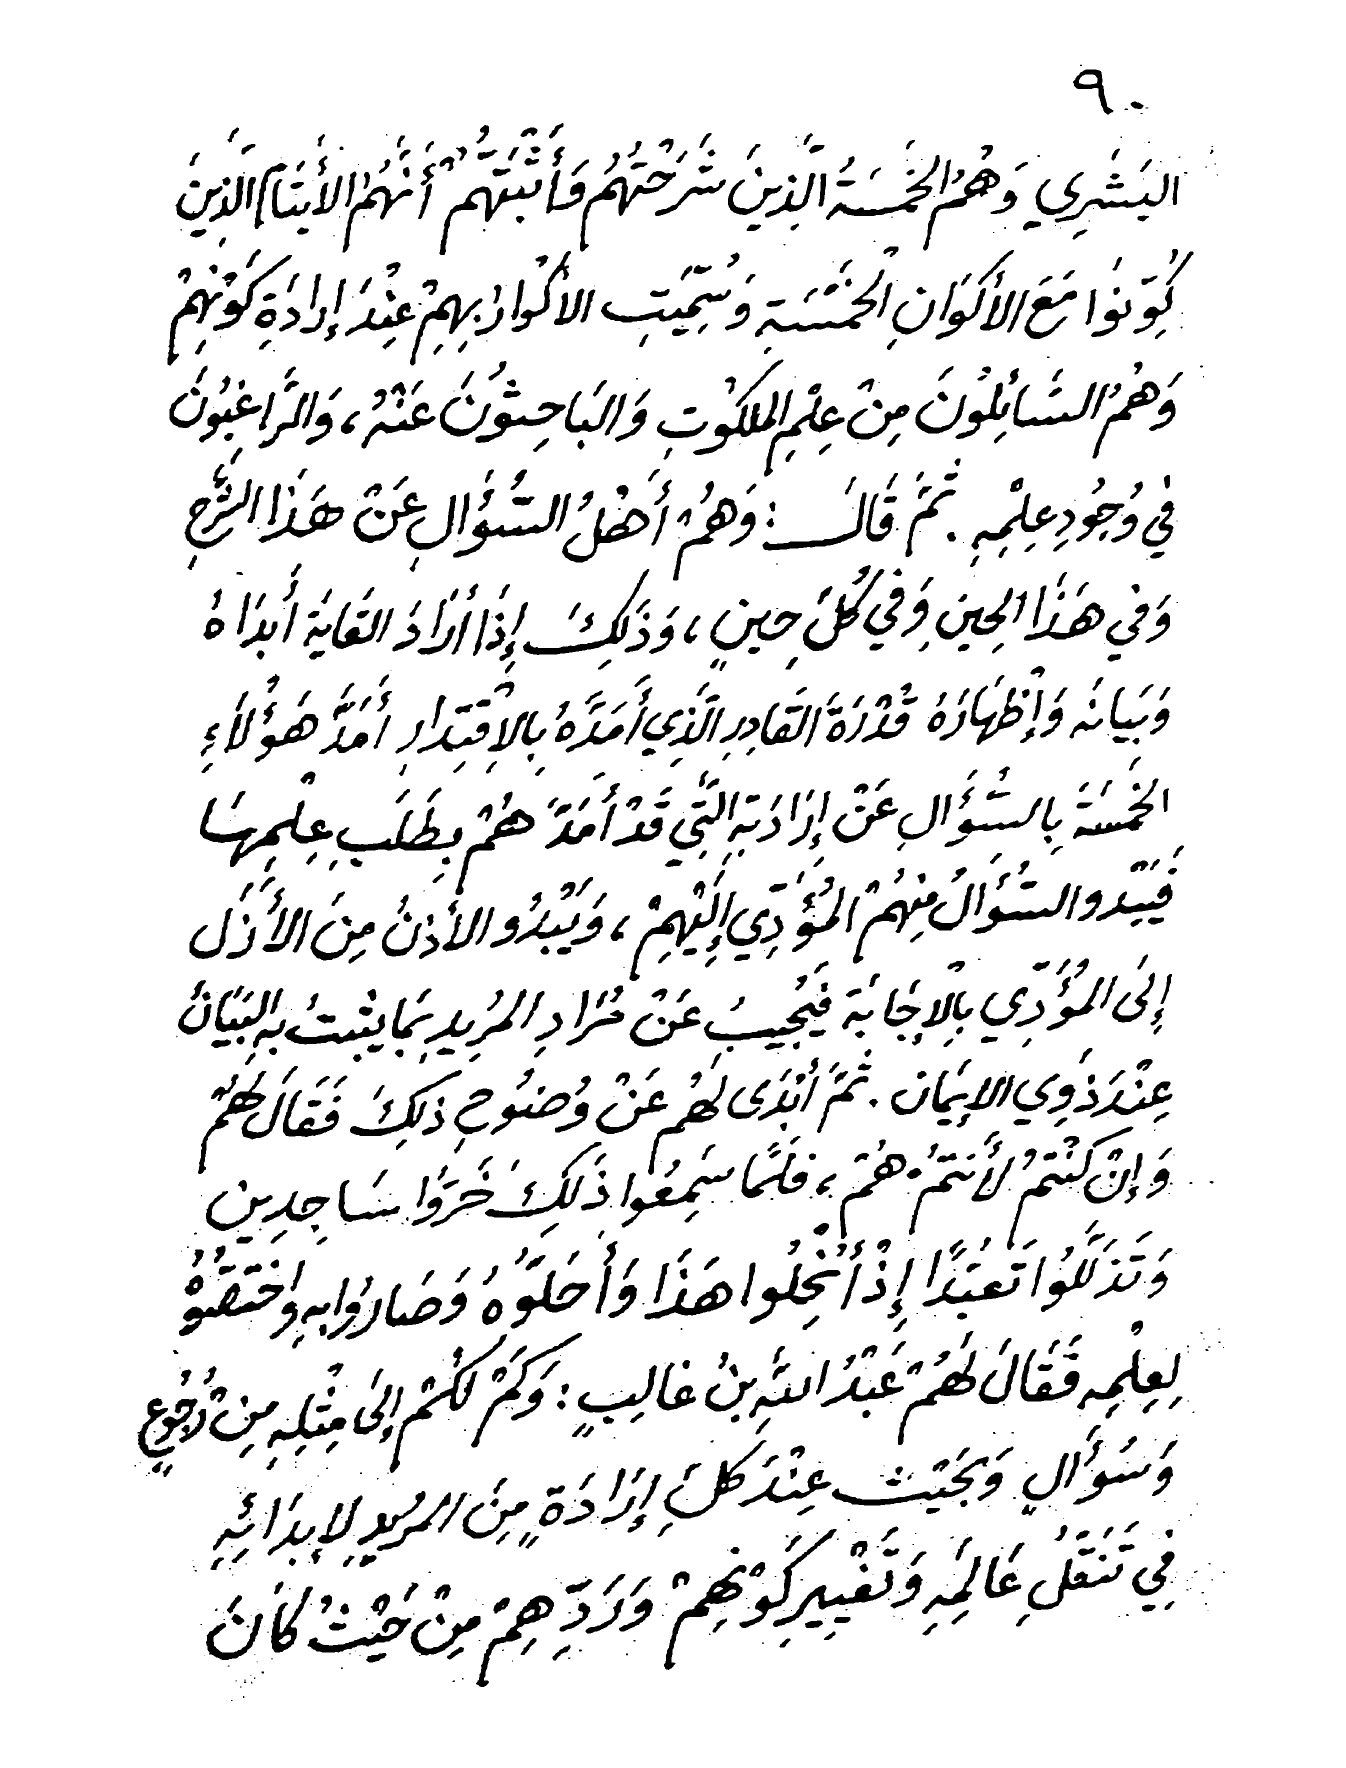 ٩٠
البَشَرِي وَهُمُ الخَمْسَةُ الَّذِينَ شَرَحْتَهُمْ وَأَثْبَتَّهُمْ أَنَّهُمُ الأَيْتَامُ الَّذِينَ
كُوِّنُوا مَعَ الأَكْوَانِ الْخَمْسَةِ وَسُمِّيَتِ الأَكْوَارُ بِهِمْ عِنْدَ إِرَادَةِ كَوْنِهِمْ
وَهُمُ السَّائِلُونَ مِنْ عِلْمِ المَلَكُوتِ وَالبَاحِثُونَ عَنْهُ، وَالرَّاغِبُونَ
في وُجُودِ عِلْمِهِ . ثُمَّ قَالَ : وَهُمْ أَهْلُ السُّؤَالِ عَنْ هَذَا الشَّرْحِ
وَفي هَذَا الحِينِ وَفي كُلِّ حِينٍ ، وَذَلِكَ إِذَا أَرَادَ الغَايَةَ أَبْدَاهُ
وَبَيَانَه وَإِظْهَارَهُ قُدْرَةَ القَادِرِ الَّذِي أَمَدَّهُ بِالاِقْتِدَارِ أَمَدَّ هَؤُلَاءِ
الخَمْسَةَ بِالسُّؤَالِ عَنْ إِرَادَتِهِ الَّتِي قَدْ أَمَدَّ هُمْ بِطَلَبِ عِلْمِهَا
فَيَبْدو السُّؤَالُ مِنْهُمْ المُؤَدِّي إِلَيْهِمْ ، وَيَبْدُو الأذنُ مِنَ الأَزَلِ
إِلَى المُؤَدِّي بِالإِجَابَةِ فَيُجِيبُ عَنْ مُرَادِ المُرِيدِ بِمَا يثبتُ بِهِ البَيَانُ
عِنْدَ ذَوِي الإِيمَان . ثُمَّ أَبْدَى لَهُم عَنْ وُضُوحِ ذلِكَ فَقَالَ لَهُمْ
وَإِنْ كُنْتُمْ لَأَنتُمْ هُمْ ، فَلَمَّا سَمِعُوا ذَلِكَ خَرُّوا سَاجِدِين
وَتَذَلَّلُوا تَعَبُّدًا إِذْ أُنْحِلُوا هَذَا وَأُحِلُّوهُ وَصَارُوا بِهِ وَاخْتَصُّوا
لِعِلْمِهِ فَقَالَ لَهُمْ عَبْدُ اللهِ بنُ غالِبٍ : وَكَمْ لَكُمْ إِلَى مِثْلِهِ مِنْ رُجُوعٍ
وَسُؤَالٍ وَبَحْثٍ عِنْدَ كُلِّ إِرَادَةٍ مِنَ المُرِيدِ لإِبدَائِهِ
في تَنَقُّلِ عَالَمِهِ وَتَغْيِيرِ كَوْنِهِمْ وَرَدِّهِمْ مِنْ حَيْثُ كَانَ